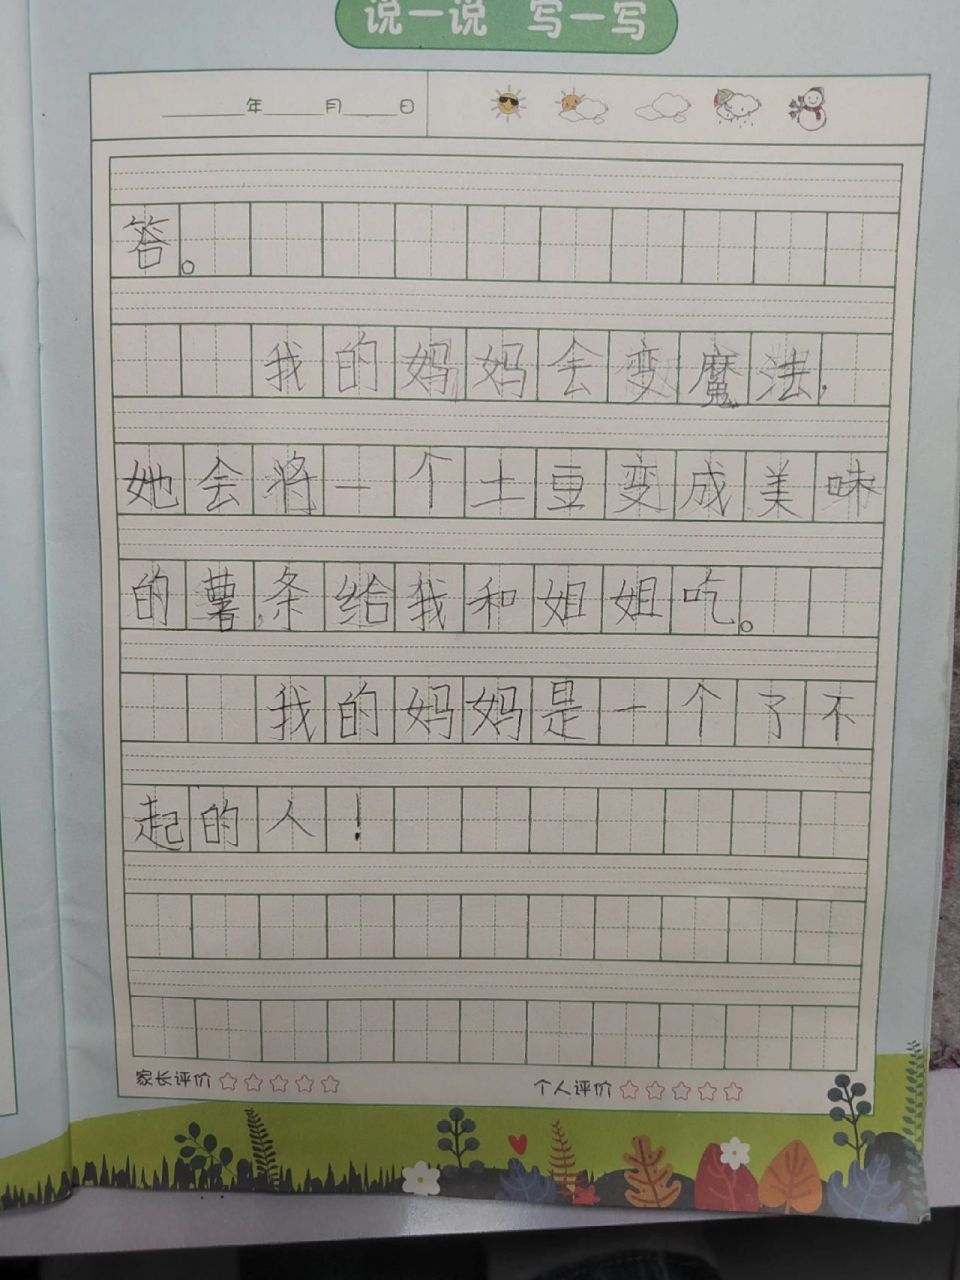 说一说 写一写
年 月 日
答。
我的妈妈会变魔法，
她会将一个土豆变成美味
的薯条给我和姐姐吃。
我的妈妈是一个了不
起的人！
家长评价 个人评价